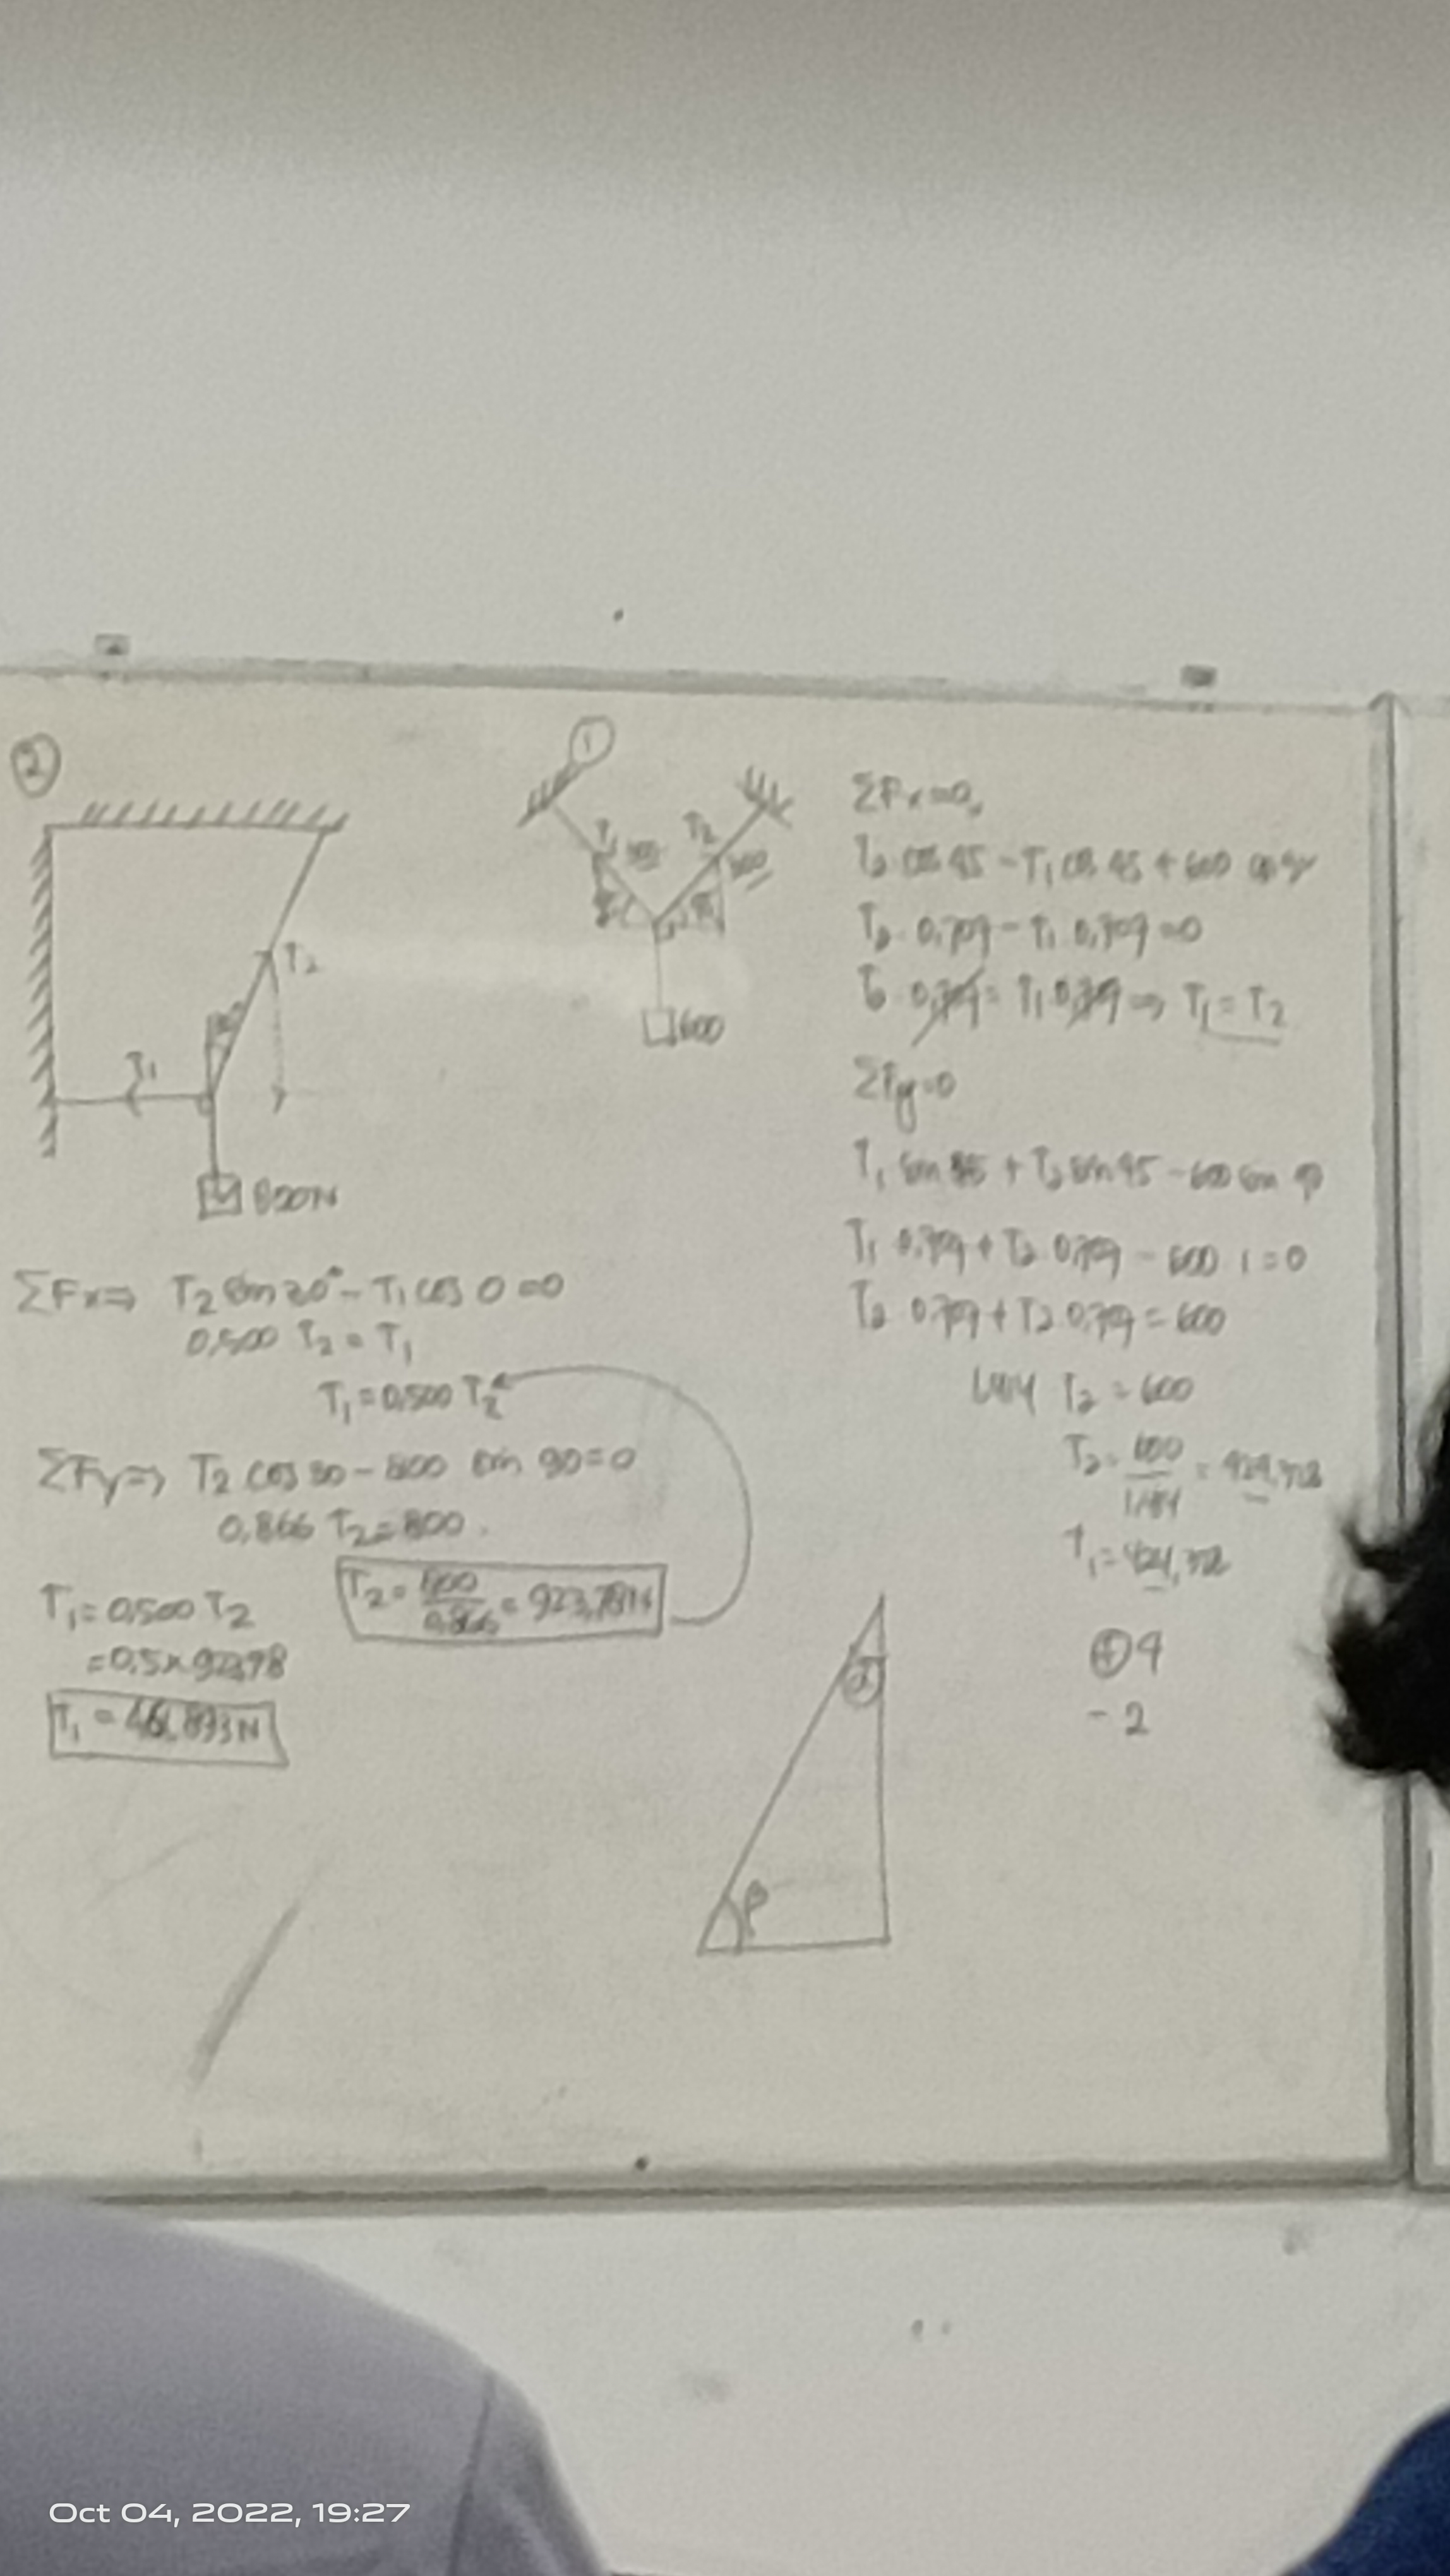 2
T₂
T₁
800N
ΣFx⇒ T₂ sin 30° - T₁ cos 0 = 0
0,500 T₂ = T₁
T₁ = 0,500 T₂
ΣFy⇒ T₂ cos 30 - 800 sin 90 = 0
0,866 T₂ = 800
T₂ = 800/0,866 = 923,78N
T₁ = 0,500 T₂
= 0,5 x 923,78
T₁ = 461,893N
1
T₂
600
ΣFx=0
T₂ cos 45 - T₁ cos 45 + 600 cos
T₂ 0,707 - T₁ 0,707 = 0
T₂ 0,707 = T₁ 0,707 ⇒ T₁ = T₂
ΣFy=0
T₁ sin 45 + T₂ sin 45 - 600 sin 90
T₁ 0,707 + T₂ 0,707 - 600 1 = 0
T₂ 0,707 + T₂ 0,707 = 600
1,414 T₂ = 600
T₂ = 600/1,414 =
T₁ =
- 2
β
Oct 04, 2022, 19:27